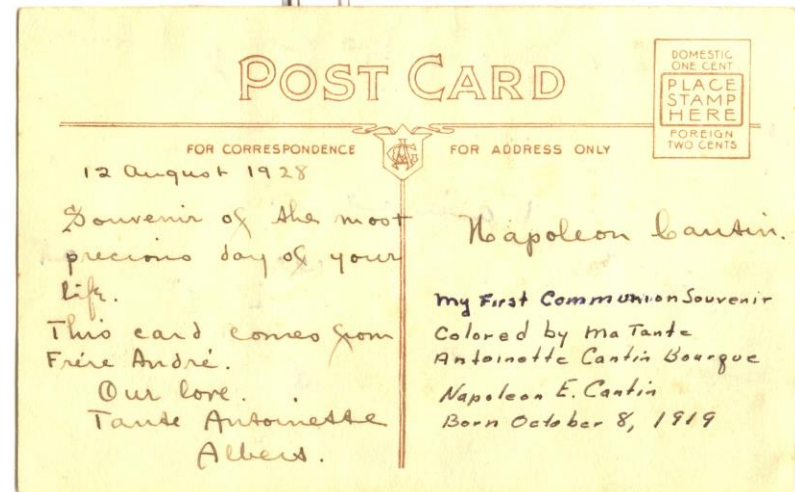 POST CARD
DOMESTIC
ONE CENT
PLACE
STAMP
HERE
FOREIGN
TWO CENTS
FOR CORRESPONDENCE
12 August 1928
Souvenir of the most
precious day of your
life.
This card comes from
Frère André.
Our love.
Tante Antoinette
Albert.
FOR ADDRESS ONLY
Napoleon Cantin.
My First Communion Souvenir
Colored by Ma Tante
Antoinette Cantin Bourque
Napoleon E. Cantin
Born October 8, 1919